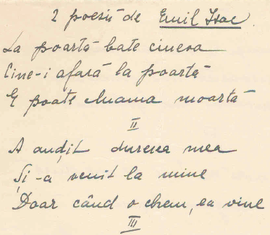 2 poesii de Emil Isac
La poartă bate cineva
Cine-i afară la poartă
E poate Mama moartă
II
A auzit durerea mea
Şi-a venit la mine
Doar când o chem, ea vine
III